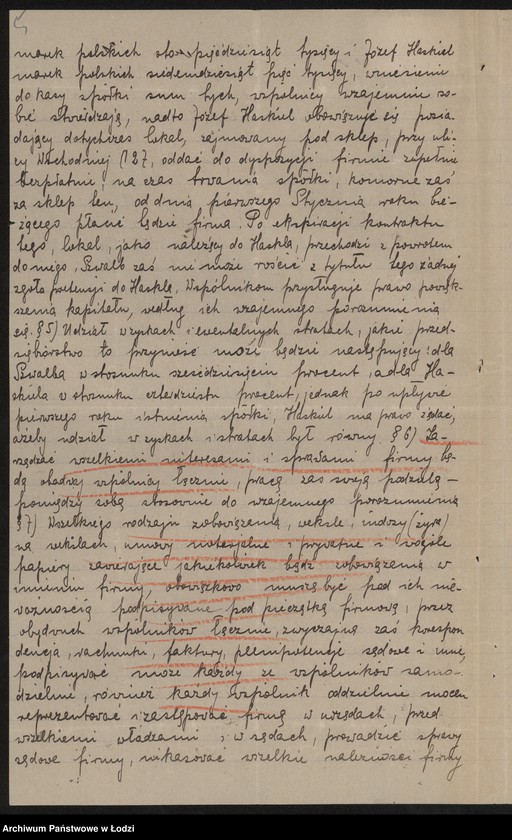 marek polskich sto pięćdziesiąt tysięcy i Józef Haskiel
marek polskich siedemdziesiąt pięć tysięcy, wniesienie
do kasy spółki sum tych, wspólnicy wzajemnie so-
bie stwierdzają, nadto Józef Haskiel obowiązuje się posia
dający dotychczas lokal, zajmowany pod sklep, przy uli-
cy Wschodniej 127, oddać do dyspozycji firmie zupełnie
bezpłatnie, na czas trwania spółki, komorne zaś
za sklep ten, od dnia pierwszego Stycznia roku bie-
żącego płacić będzie firma. Po ekspiracji kontraktu
tego, lokal, jako należący do Haskla, przechodzi z powrotem
do niego, Szwalb zaś nie może rościć z tytułu tego żadnej
zgoła pretensji do Haskla. Wspólnikom przysługuje prawo powięk-
szenia kapitału, według ich wzajemnego porozumienia
się. § 5) Udział w zyskach i ewentualnych stratach, jakie przed-
siębiorstwo to przynieść może będzie następujący: dla
Szwalba w stosunku sześćdziesięciu procent, a dla Ha-
skiela w stosunku czterdziestu procent, jednak po upływie
pierwszego roku istnienia spółki, Haskiel ma prawo żądać,
ażeby udział w zyskach i stratach był równy. § 6) Za-
rządzać wszelkiemi interesami i sprawami firmy bę-
dą obydwaj wspólnicy łącznie, pracą zaś swoją podzielą-
pomiędzy sobą stosownie do wzajemnego porozumienia
§ 7) Wszelkiego rodzaju zobowiązania, weksle, indosy (żyra)
na wekslach, umowy notarjalne i prywatne i wogóle
papiery zawierające jakiekolwiek bądź zobowiązania w
imieniu firmy, obowiązkowo muszą być pod ich nie-
ważnością podpisywane pod pieczątką firmową, przez
obydwuch wspólników łącznie, zwyczajną zaś korespon
dencję, rachunki, faktury, plenipotencje sądowe i inne,
podpisywać może każdy ze wspólników samo-
dzielnie, również każdy wspólnik oddzielnie mocen
reprezentować i zastępować firmę w urzędach, przed
wszelkiemi władzami i w sądach, prowadzić sprawy
sądowe firmy, inkasować wszelkie należności firmy
Archiwum Państwowe w Łodzi